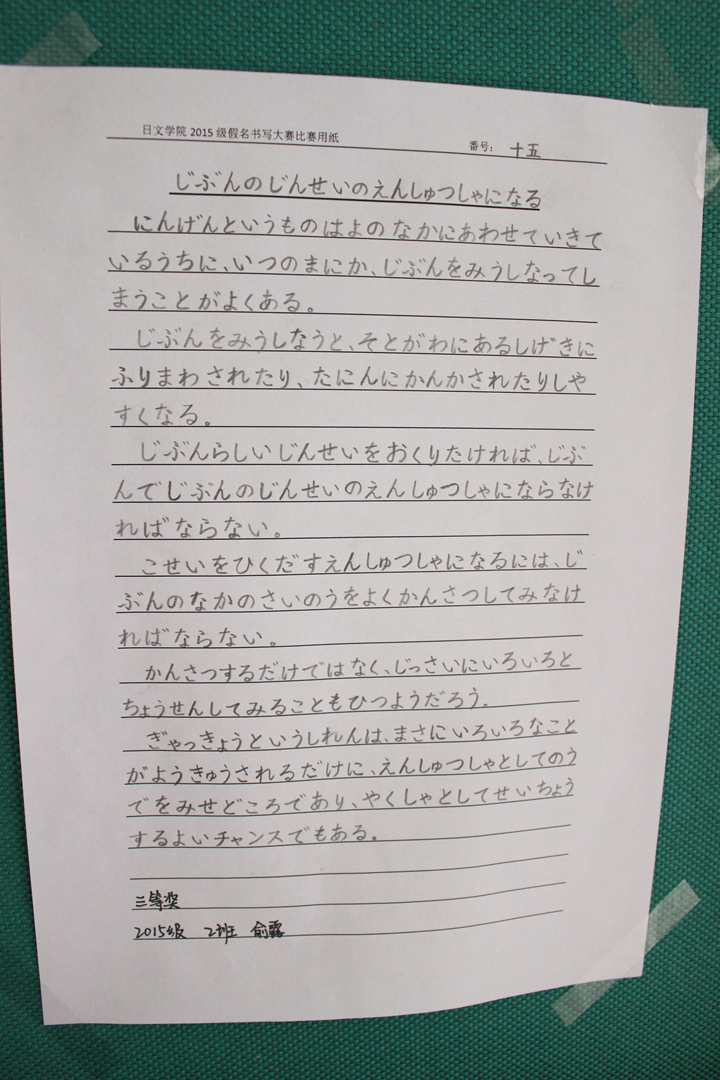 日文学院 2015 级假名书写大赛比赛用纸 番号： 十五
じぶんのじんせいのえんしゅつしゃになる
にんげんというものはよのなかにあわせていきて
いるうちに、いつのまにか、じぶんをみうしなってし
まうことがよくある。
じぶんをみうしなうと、そとがわにあるしげきに
ふりまわされたり、たにんにかんかされたりしや
すくなる。
じぶんらしいじんせいをおくりたければ、じぶ
んでじぶんのじんせいのえんしゅつしゃにならなけ
ればならない。
こせいをひくだすえんしゅつしゃになるには、じ
ぶんのなかのさいのうをよくかんさつしてみなけ
ればならない。
かんさつするだけではなく、じっさいにいろいろと
ちょうせんしてみることもひつようだろう。
ぎゃっきょうというしれんは、まさにいろいろなこと
がようきゅうされるだけに、えんしゅつしゃとしてのう
でをみせどころであり、やくしゃとしてせいちょう
するよいチャンスでもある。
三等奖
2015级 2班 俞露